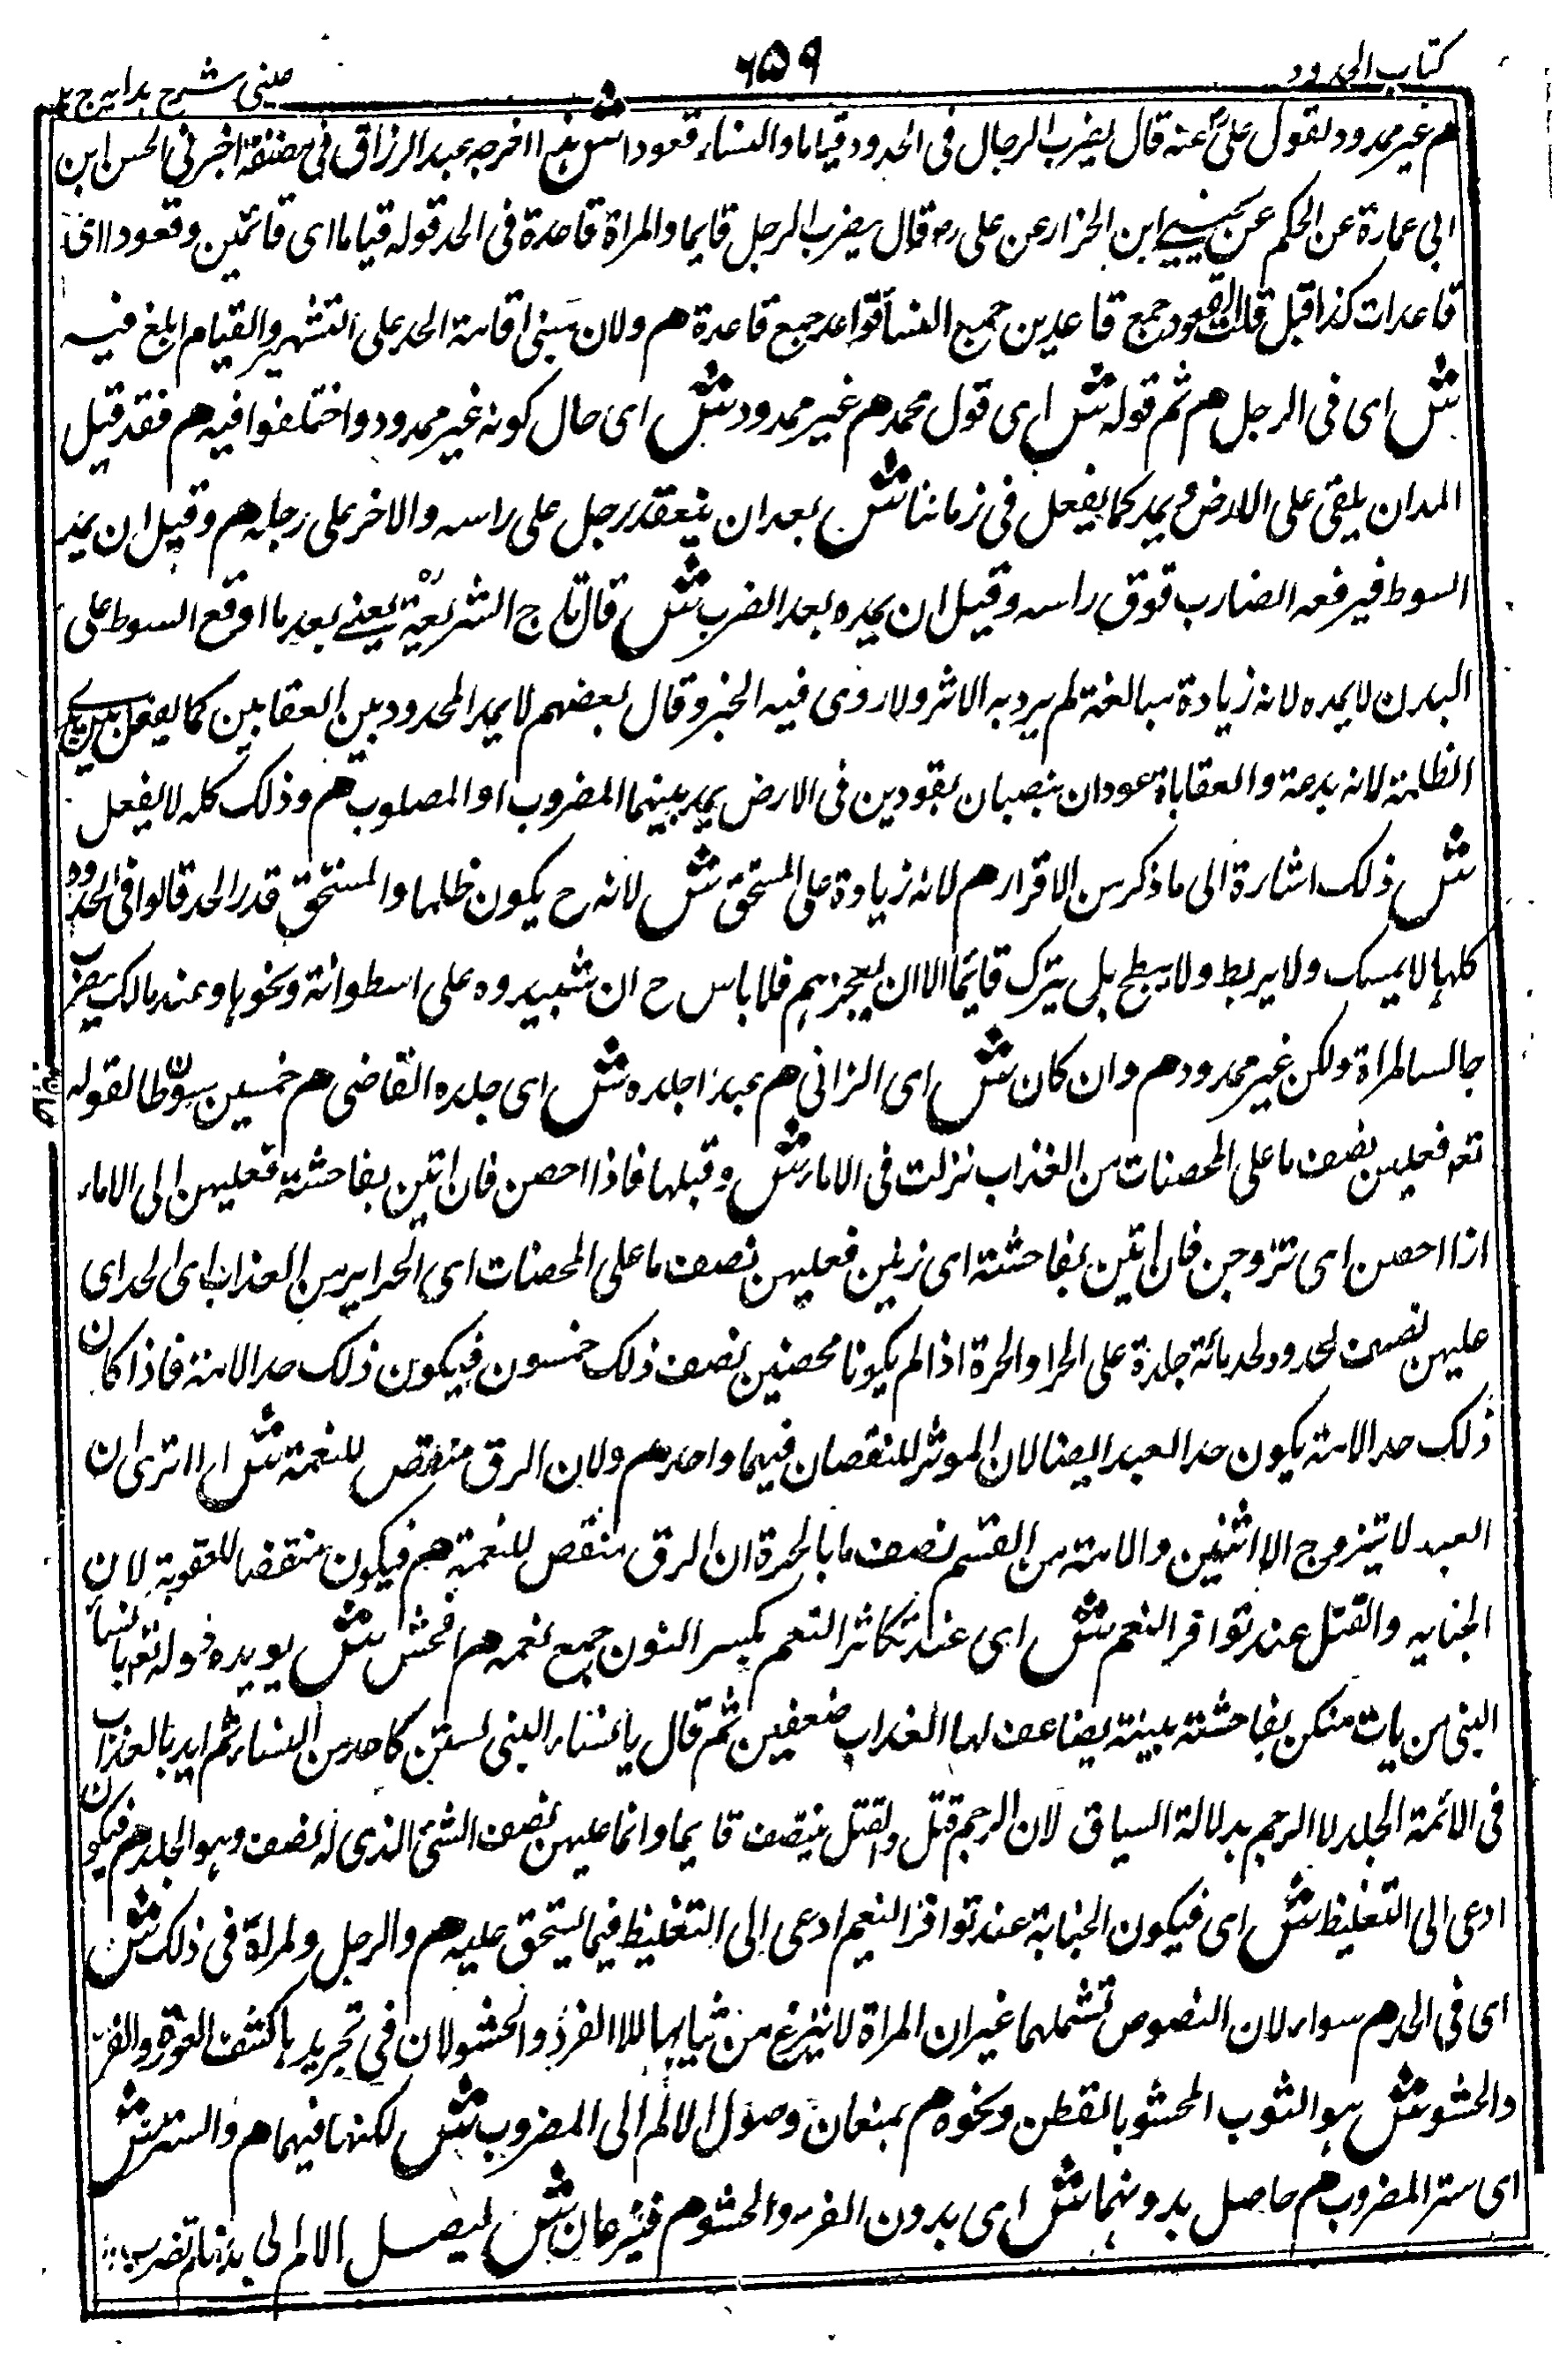 كتاب الحدود
٦٥٩
عينى شرح هدايه ج ٢
هم غير ممدود لقول على عنه قال يضرب الرجال فى الحدود قياما والنساء قعودا ش هذا اخرجه عبد الرزاق فى مصنفه اخبرنى الحسن ابن
ابى عمارة عن الحكم عن يحيى ابن الجزار عن على رض قال يضرب الرجل قايما والمراة قاعدة فى الحد قوله قياما اى قائمين وقعودا اى
قاعدات كذا قيل قلت القعود جمع قاعدين جميع النساء قواعد جمع قاعدة هم ولان مبنى اقامة الحد على التشهير والقيام ابلغ فيه
ش اى فى الرجل هم ثم قوله ش اى قول محمد هم غير ممدود ش اى حال كونه غير ممدود واختلفوا فيه هم فقد قيل
المد ان يلقى على الارض ويمد كما يفعل فى زماننا ش بعد ان ينعقد رجل على راسه والاخر على رجله هم وقيل ان يمد
السوط فيرفعه الضارب فوق راسه وقيل ان يمده بعد الضرب ش قال تاج الشريعة يعنى بعد ما اوقع السوط على
البدن لا يمده لانه زيادة مبالغة لم يرد به الاثر ولا روى فيه الخبر وقال بعضهم لا يمد المحدود بين العقابين كما يفعل بين يدى
الظلمة لانه بدعة والعقابان عودان ينصبان بقودين فى الارض يمد بينهما المضروب او المصلوب هم وذلك كله لا يفعل
ش ذلك اشارة الى ما ذكر من الاقرار هم لانه زيادة على المستحق ش لانه ح يكون ظلما والمستحق قدر الحد قالوا فى الحدود
كلها لا يمسك ولا يربط ولا يبطح بل يترك قائما الا ان يعجزهم فلا باس ح ان شبيدوه على اسطوانة ونحوها وعند مالك يضرب
جالسا لمراة ولكن غير ممدود هم وان كان ش اى الزانى هم عبدا جلده ش اى جلده القاضى هم خمسين سوطا لقوله
تعه فعليهن نصف ما على المحصنات من العذاب نزلت فى الاماء ش وقبلها فاذا احصن فان اتين بفاحشة فعليهن اى الاماء
اذا احصن اى تزوجن فان اتين بفاحشة اى زنين فعليهن نصف ما على المحصنات اى الحراير من العذاب اى الحد اى
عليهن نصف لحدود لحد مائة جلدة على الحر والحرة اذا لم يكونا محصنين نصف ذلك خمسون فيكون ذلك حد الامة فاذا كان
ذلك حد الامة يكون حد العبد ايضا لان الموثر للنقصان فيهما واحد هم ولان الرق منقص للنعمة ش اى الا ترى ان
العبد لا يتزوج الا اثنين والامة من القسم نصف ما بالحرة ان الرق منقص للنعمة هم فيكون منقضا للعقوبة لان
الجنايه والقتل عند توافر النعم ش اى عند تكاثر النعم بكسر النون جمع نعمه هم افحش ش يويده قوله تعه يا نساء
النبى من يات منكن بفاحشة مبينة يضاعف لها العذاب ضعفين ثم قال يا نساء النبى لستن كاحد من النساء ثم ايد بالعذاب
فى الائمة الجلد لا الرجم بدلالة السياق لان الرجم قتل والقتل ينصف قايما وانما عليهن نصف الشئ الذى له نصف وهو الجلد هم فيكون
ادعى الى التغليظ ش اى فيكون الجناية عند توافر النعم ادعى الى التغليظ فيما يستحق عليه هم والرجل ولمراة فى ذلك ش
اى فى الحد هم سواء لان النصوص تشملهما غير ان المراة لا ينزع من ثيابها الا الفرو والحشو لان فى تجريدها كشف العورة والفرو
والحشو ش هو الثوب المحشو بالقطن ونحوه هم يمنعان وصول الالم الى المضروب ش لكنها فيهما هم والستر ش
اى ستر المضروب هم حاصل بدونهما ش اى بدون الفرو والحشو هم فينزعان ش ليصل الالم لى بدنها هم تضرب